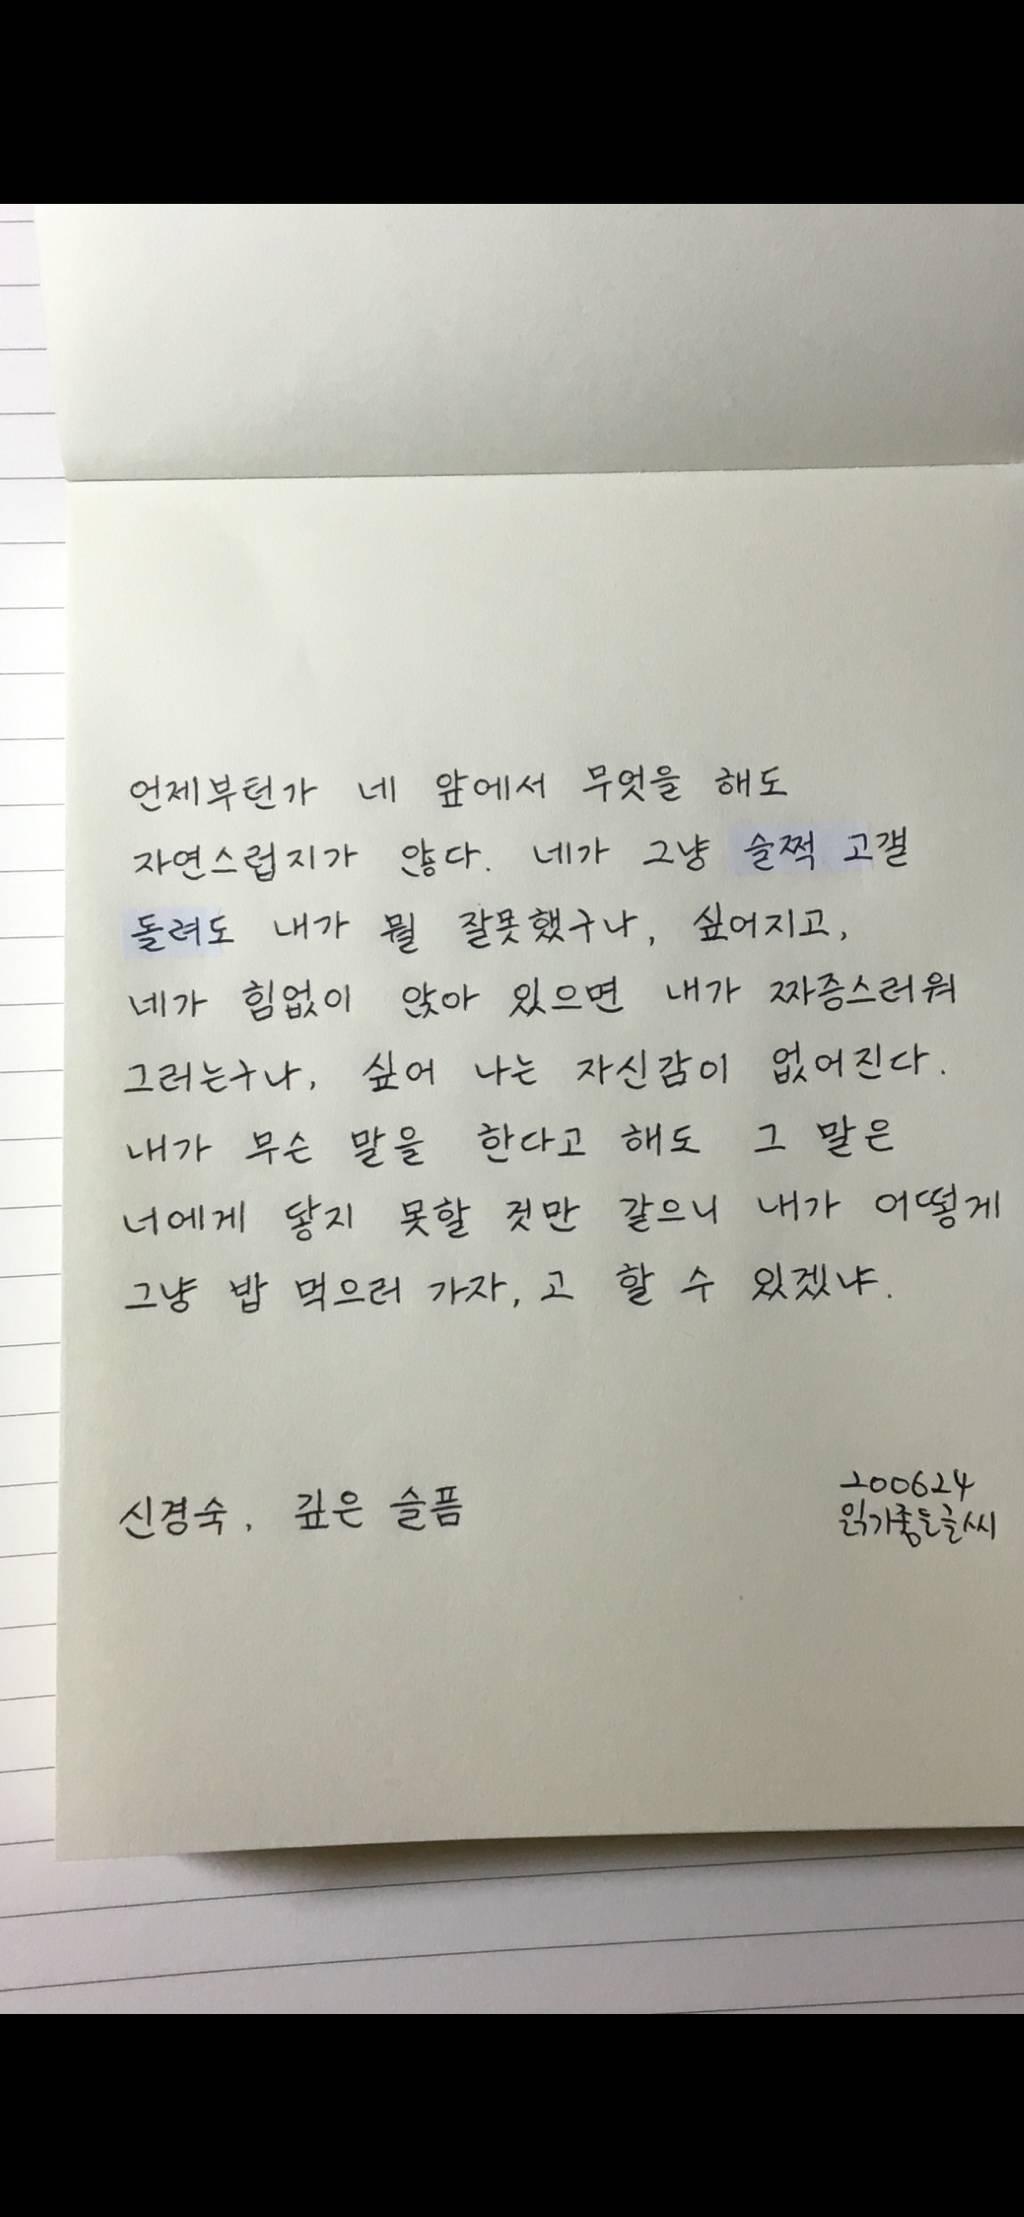 언제부턴가 네 앞에서 무엇을 해도
자연스럽지가 않다. 네가 그냥 슬쩍 고갤
돌려도 내가 뭘 잘못했구나, 싶어지고,
네가 힘없이 앉아 있으면 내가 짜증스러워
그러는구나, 싶어 나는 자신감이 없어진다.
내가 무슨 말을 한다고 해도 그 말은
너에게 닿지 못할 것만 같으니 내가 어떻게
그냥 밥 먹으러 가자, 고 할 수 있겠냐.
신경숙, 깊은 슬픔
200624
읽기좋은글씨